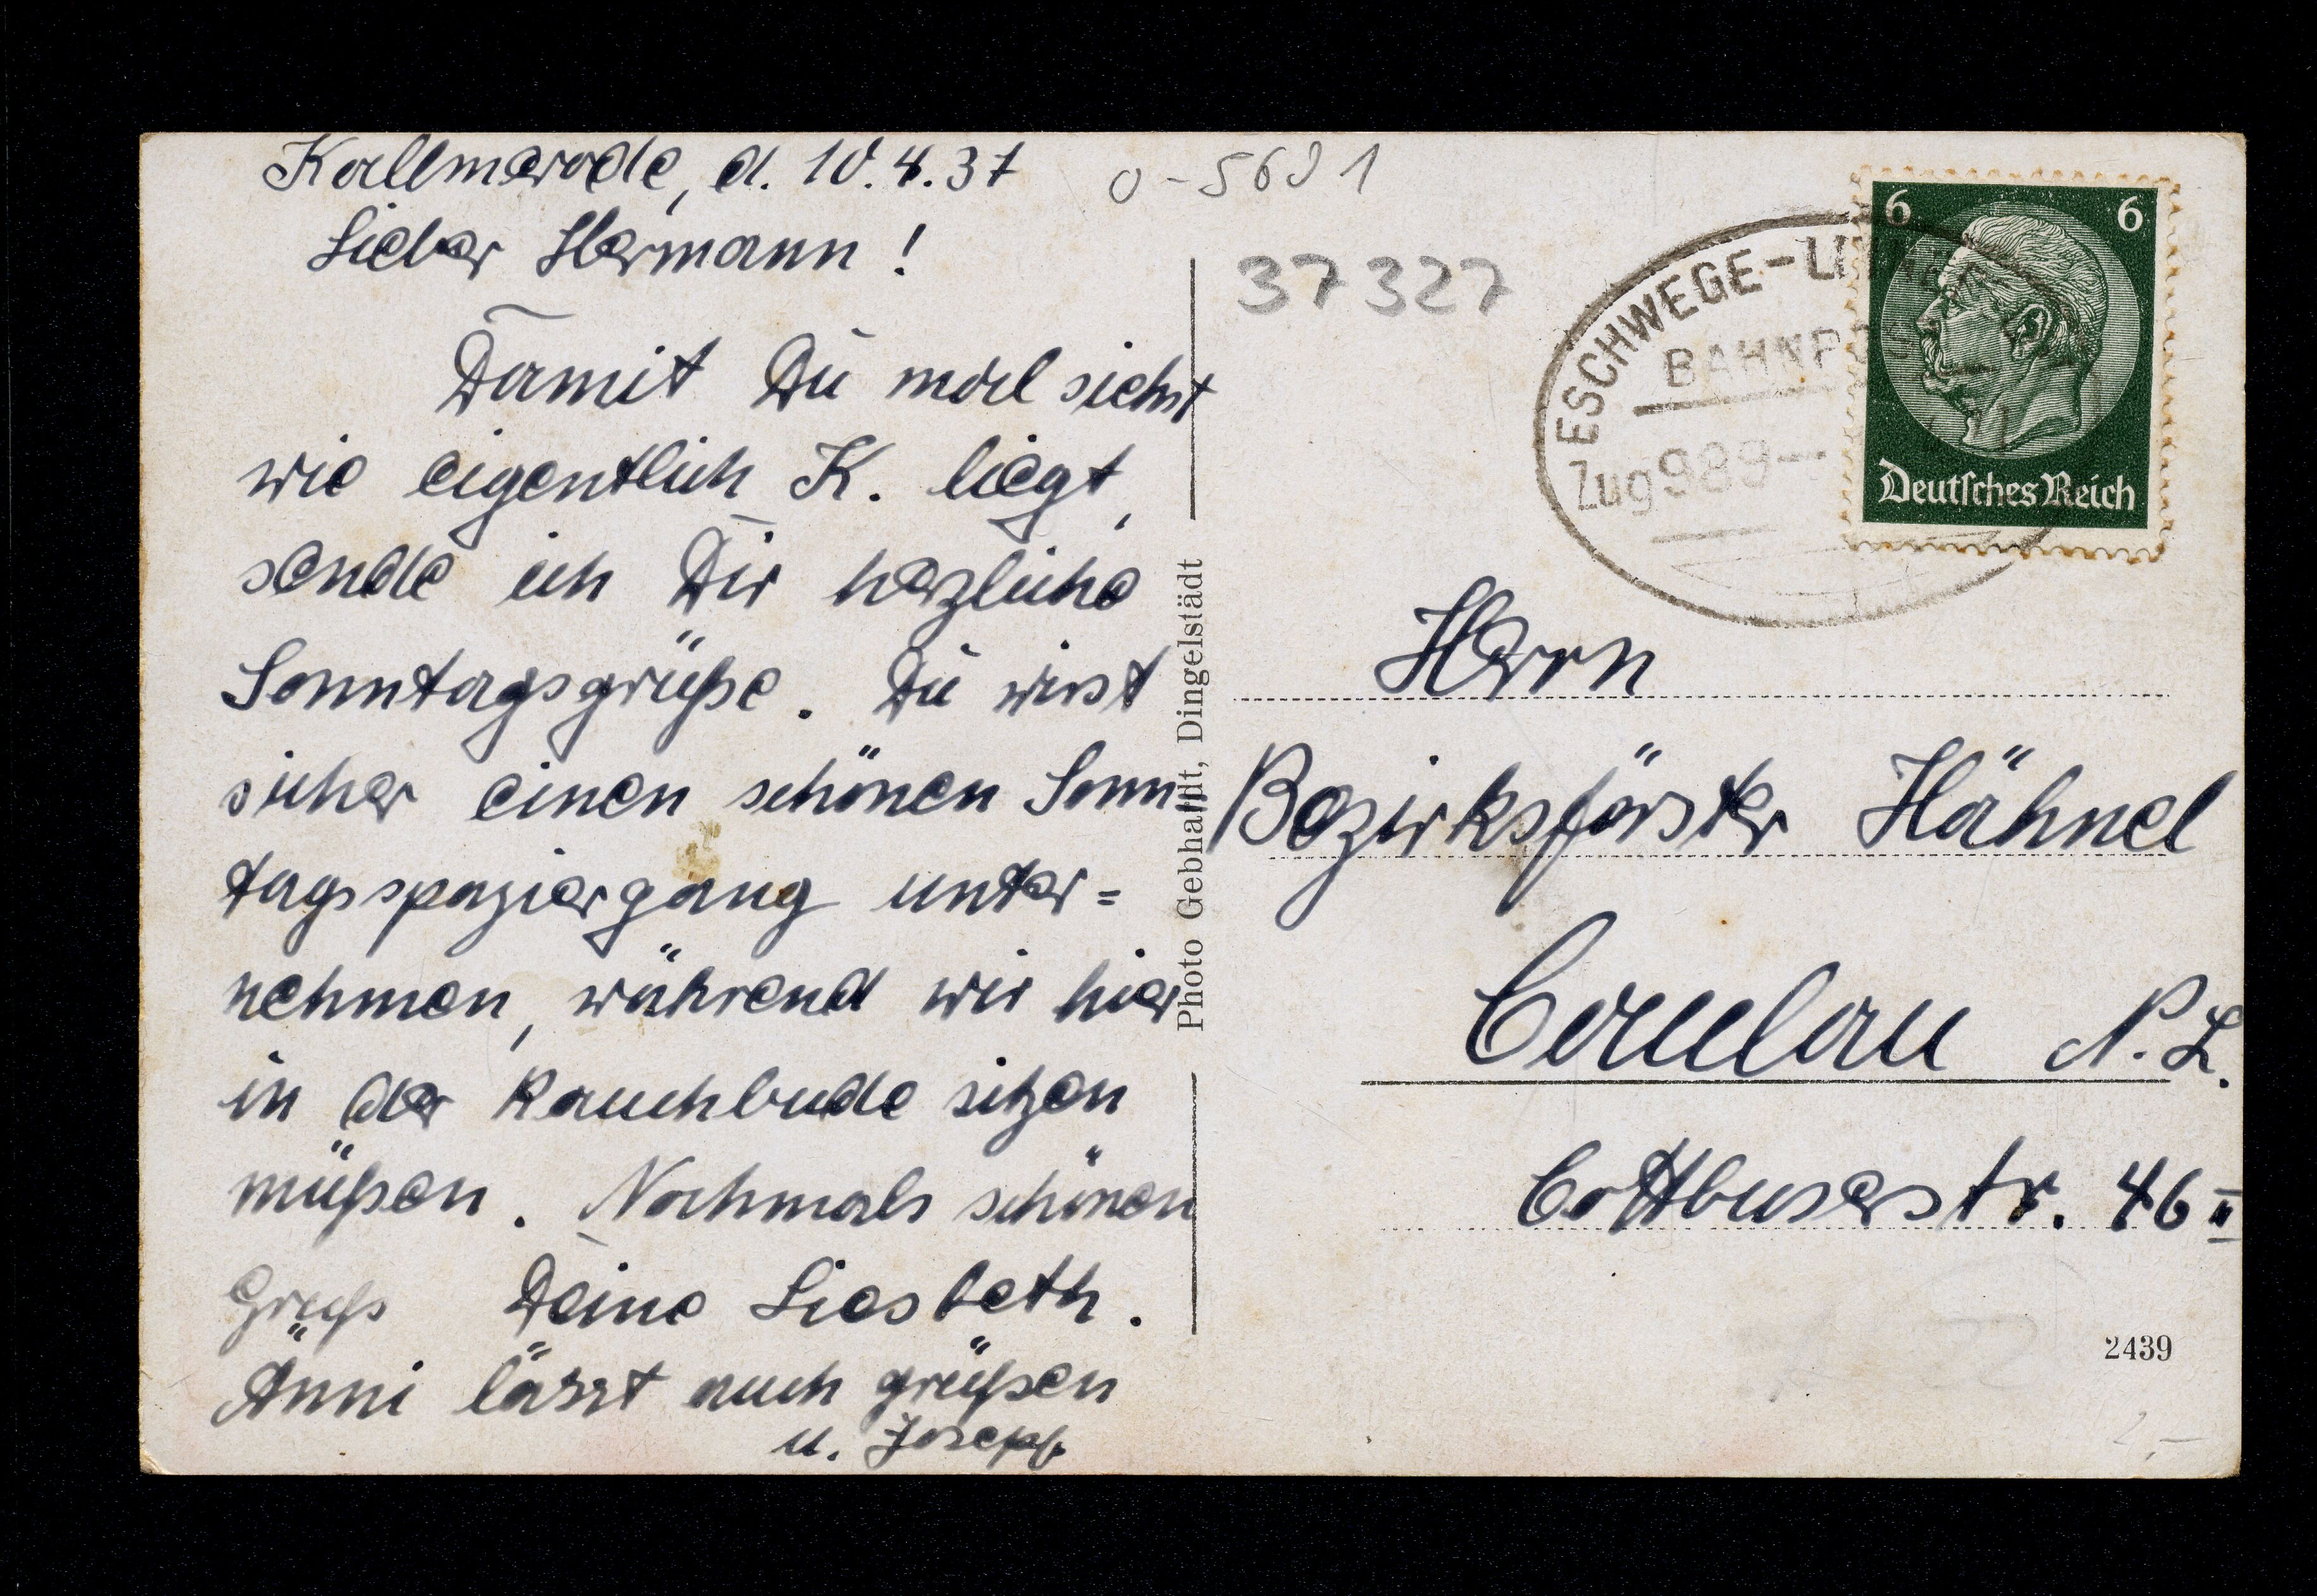 Kallmerode, d. 10.4.37
Lieber Hermann!
Damit Du mal siehst
wie eigentlich K. liegt,
sende ich Dir herzliche
Sonntagsgrüße. Du wirst
sicher einen schönen Sonn-
tagsspaziergang unter=
nehmen, während wir hier
in der Rauchbude sitzen
müßen. Nochmals schönen
Gruß Deine Liesbeth.
Änni lässt auch grüßen
u. Joseph
Photo Gebhardt, Dingelstädt
0-5601
37327
ESCHWEGE-
BAHNPOST
Zug 989
6 6
Deutsches Reich
Herrn
Bezirksförster Hähnel
Calau N.L.
Cottbuserstr. 46 II
2439
2,-